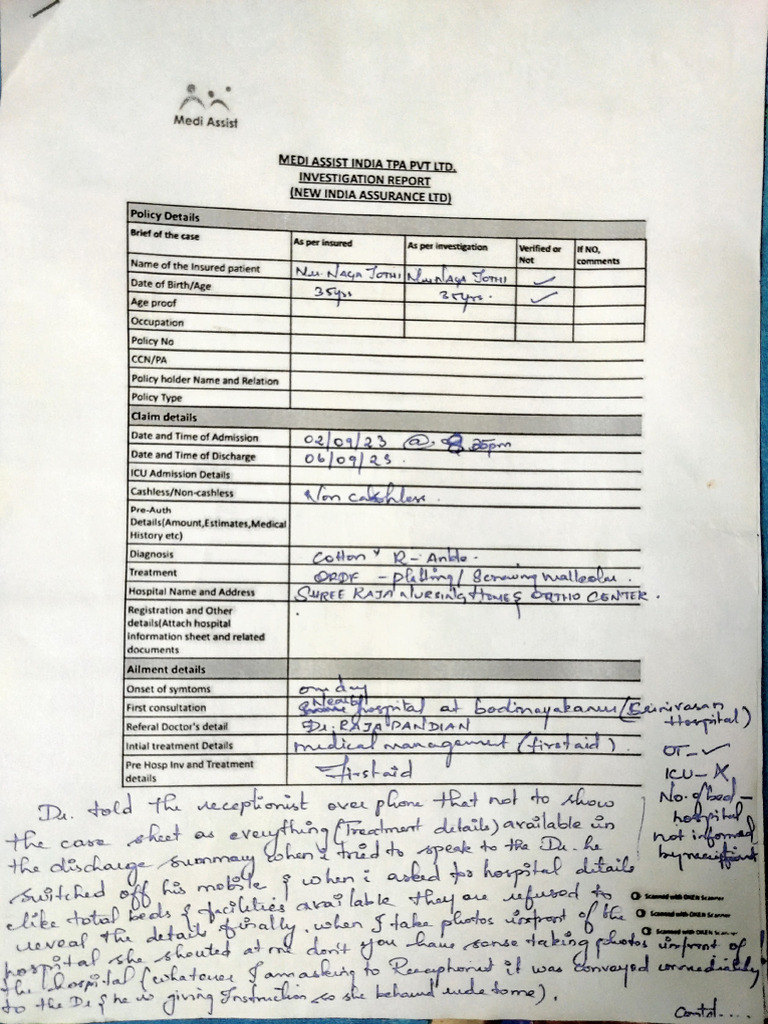 Medi Assist
MEDI ASSIST INDIA TPA PVT LTD.
INVESTIGATION REPORT
(NEW INDIA ASSURANCE LTD)
Policy Details
Brief of the case As per insured As per investigation Verified or Not If NO, comments
Name of the Insured patient NAGA JOTHI NAGA JOTHI ✓
Date of Birth/Age 35yrs 35yrs. ✓
Age proof
Occupation
Policy No
CCN/PA
Policy holder Name and Relation
Policy Type
Claim details
Date and Time of Admission 02/09/23 @ 8.25pm
Date and Time of Discharge 06/09/23.
ICU Admission Details
Cashless/Non-cashless Non cashless.
Pre-Auth
Details(Amount,Estimates,Medical
History etc)
Diagnosis R- Ankle.
Treatment ORDF - platting/ Screwing
Hospital Name and Address SHREE RAJA NURSING HOME & ORTHO CENTER.
Registration and Other
details(Attach hospital
information sheet and related
documents
Ailment details
Onset of symtoms one day
First consultation Nearby hospital at bodinayakanur (Srinivasan Hospital)
Referal Doctor's detail Dr. RAJA PANDIAN
Intial treatment Details medical management (first aid).
Pre Hosp Inv and Treatment
details First aid
OT- ✓
ICU- X
No. of bed -
hospital
not informed
by receptionist
Dr. told the receptionist over phone that not to show
the case sheet as everything (Treatment details) available in
the discharge summary when i tried to speak to the Dr. he
switched off his mobile & when i asked for hospital details
like total beds & facilities available they are refused to
reveal the details finally, when I take photos infront of the
hospital she shouted at me don't you have sense taking photos infront of
the hospital (whatever I am asking to Receptionist it was conveyed immediately
to the Dr & he is giving Instruction so she behaved rude to me).
Contd....
Scanned with OKEN Scanner
Scanned with OKEN Scanner
Scanned with OKEN Scanner